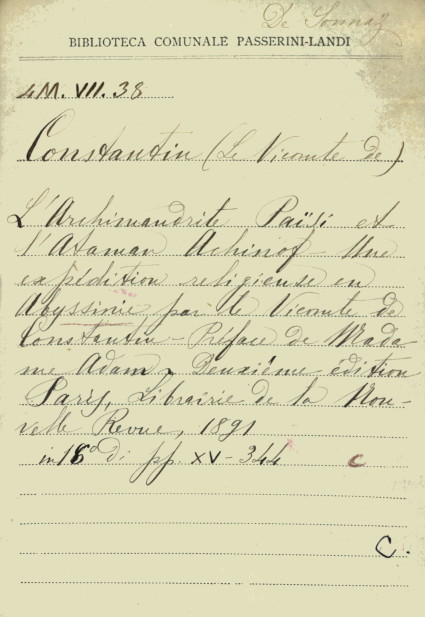 De Sonnaz
BIBLIOTECA COMUNALE PASSERINI-LANDI
4M. VII. 38
Constantin (Le Vicomte de)
L'Archimandrite Païsi et
l'Ataman Achinof - Une
expédition religieuse en
Abyssinie, par le Vicomte de
Constantin - Préface de Mada-
me Adam, Deuxième édition
Paris, Librairie de la Nou-
velle Revue, 1891
in 18° di pp. XV-344 C
C.